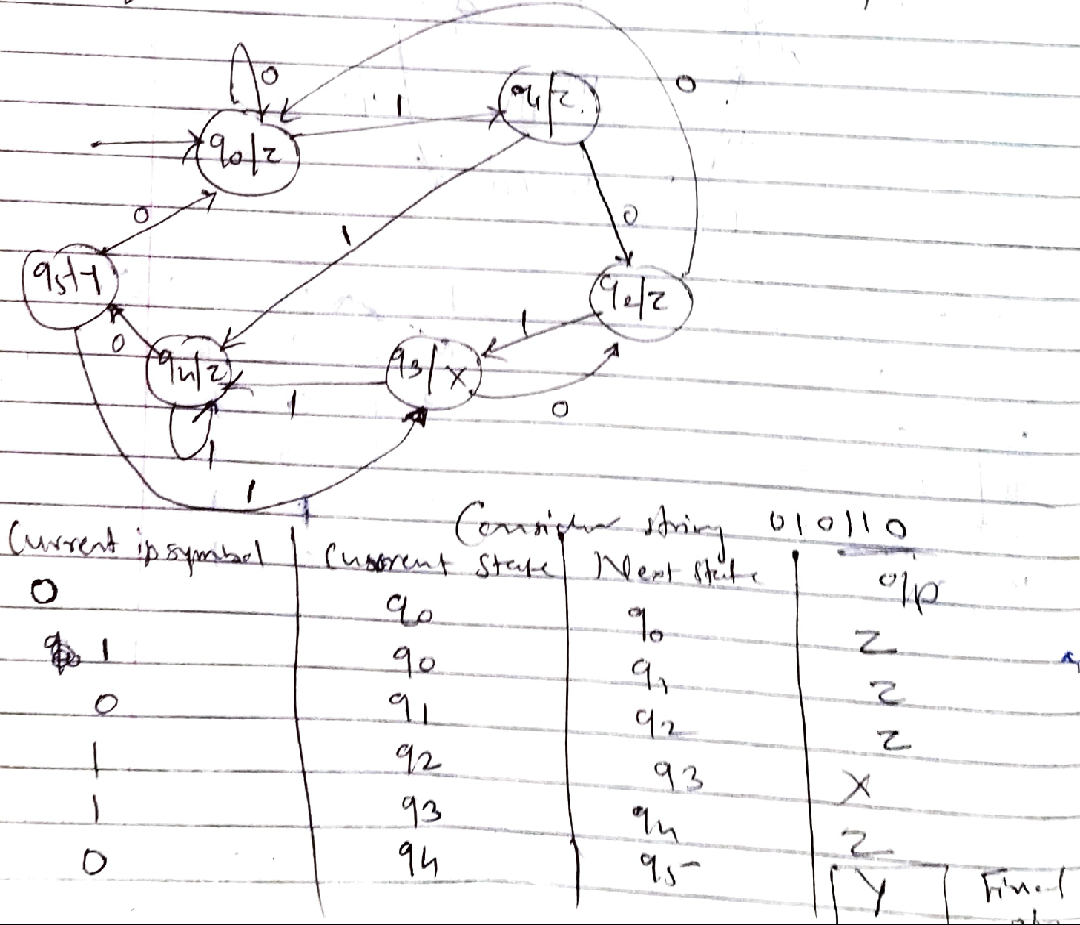 0
1
0
q0/z
q1/z
0
1
0
q5/Y
q2/z
0
1
q4/z
q3/x
1
0
1
1
Consider string 010110
Current ip symbol Current state Next state o/p
0 q0 q0 z
1 q0 q1 z
0 q1 q2 z
1 q2 q3 X
1 q3 q4 z
0 q4 q5 Y Final